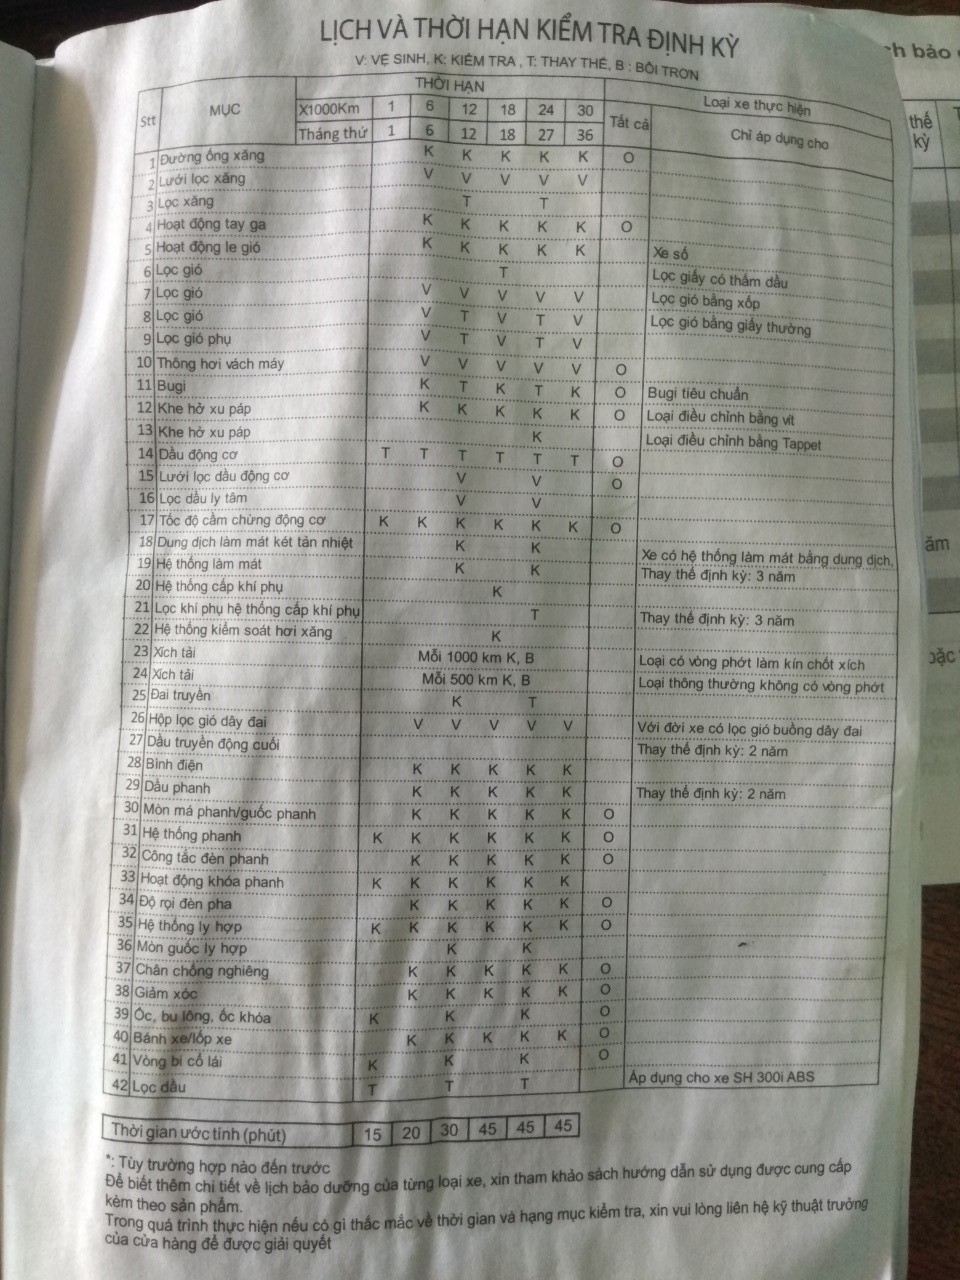 LỊCH VÀ THỜI HẠN KIỂM TRA ĐỊNH KỲ
V: VỆ SINH, K: KIỂM TRA , T: THAY THẾ, B : BÔI TRƠN
Stt MỤC THỜI HẠN Loại xe thực hiện
X1000Km 1 6 12 18 24 30 Tất cả Chỉ áp dụng cho
Tháng thứ 1 6 12 18 27 36
1 Đường ống xăng K K K K K O
2 Lưới lọc xăng V V V V V
3 Lọc xăng T T
4 Hoạt động tay ga K K K K K O
5 Hoạt động le gió K K K K K Xe số
6 Lọc gió T Lọc giấy có thấm dầu
7 Lọc gió V V V V V Lọc gió bằng xốp
8 Lọc gió V T V T V Lọc gió bằng giấy thường
9 Lọc gió phụ V T V T V
10 Thông hơi vách máy V V V V V O
11 Bugi K T K T K O Bugi tiêu chuẩn
12 Khe hở xu páp K K K K K O Loại điều chỉnh bằng vít
13 Khe hở xu páp K Loại điều chỉnh bằng Tappet
14 Dầu động cơ T T T T T T O
15 Lưới lọc dầu động cơ V V O
16 Lọc dầu ly tâm V V
17 Tốc độ cầm chừng động cơ K K K K K K O
18 Dung dịch làm mát két tản nhiệt K K Xe có hệ thống làm mát bằng dung dịch,
19 Hệ thống làm mát K K Thay thế định kỳ: 3 năm
20 Hệ thống cấp khí phụ K
21 Lọc khí phụ hệ thống cấp khí phụ T Thay thế định kỳ: 3 năm
22 Hệ thống kiểm soát hơi xăng K
23 Xích tải Mỗi 1000 km K, B Loại có vòng phớt làm kín chốt xích
24 Xích tải Mỗi 500 km K, B Loại thông thường không có vòng phớt
25 Đai truyền K T
26 Hộp lọc gió dây đai V V V V V Với đời xe có lọc gió buồng dây đai
27 Dầu truyền động cuối Thay thế định kỳ: 2 năm
28 Bình điện K K K K K
29 Dầu phanh K K K K K Thay thế định kỳ: 2 năm
30 Mòn má phanh/guốc phanh K K K K K O
31 Hệ thống phanh K K K K K K O
32 Công tắc đèn phanh K K K K K O
33 Hoạt động khóa phanh K K K K K K
34 Độ rọi đèn pha K K K K K O
35 Hệ thống ly hợp K K K K K K O
36 Mòn guốc ly hợp K K
37 Chân chống nghiêng K K K K K O
38 Giảm xóc K K K K K O
39 Ốc, bu lông, ốc khóa K K K O
40 Bánh xe/lốp xe K K K K K O
41 Vòng bi cổ lái K K K O
42 Lọc dầu T T T Áp dụng cho xe SH 300i ABS
Thời gian ước tính (phút) 15 20 30 45 45 45
*: Tùy trường hợp nào đến trước
Để biết thêm chi tiết về lịch bảo dưỡng của từng loại xe, xin tham khảo sách hướng dẫn sử dụng được cung cấp
kèm theo sản phẩm.
Trong quá trình thực hiện nếu có gì thắc mắc về thời gian và hạng mục kiểm tra, xin vui lòng liên hệ kỹ thuật trưởng
của cửa hàng để được giải quyết
bảo
thế
kỳ